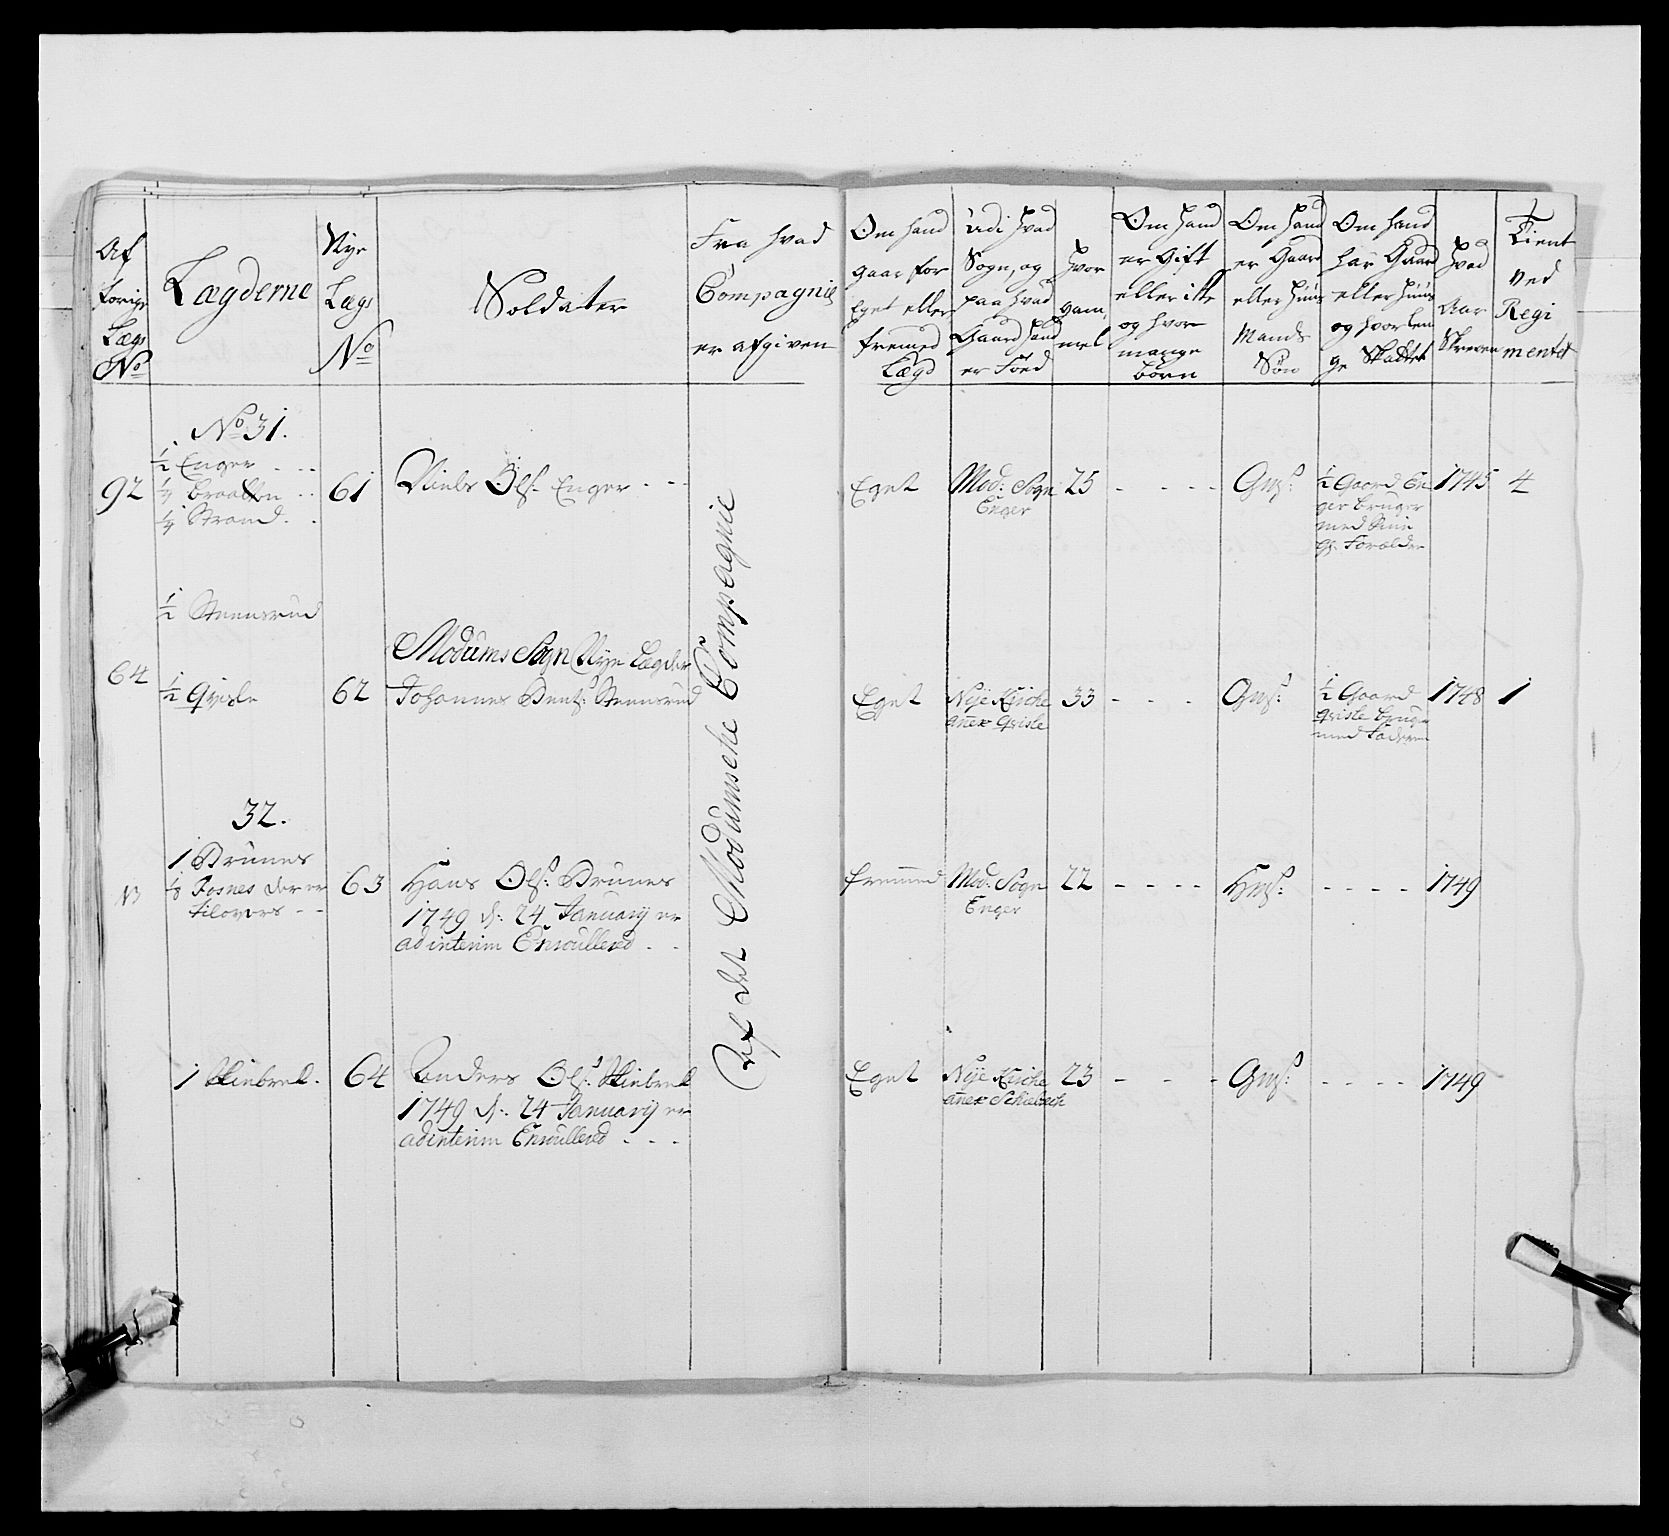 Af
forige
Lægs
No
Lægderne
Nye
Lægs
No
Soldater
Fra hvad
Compagnie
er afgiven
Om hand
gaar for
Eget eller
fremed
Lægd
Udi hvad
Sogn, og
paa hvad
Gaard hand
er Föed
Hvor
gam,
mel
Om hand
er Gift
eller iche
og hvor
mange
börn
Om hand
er Gaard
eller Huus
Mands
Sön
Om hand
har Gaard
eller Huus
og hvorlen
ge Skattet
Hvad
Aar
Skreven
Tient
ved
Regi
mentet
No 31.
92
1/2 Enger
1/4 Braatten
1/4 Strand
61
Niels Ols: Enger
Eget
Mod: Sogn
Enger
25
Gms:
1/2 Gaard En
ger bruger
med Sine
Forælder
1745
4
1/2 Steensrud
Modums Sogn Nye Lægder
64
1/2 Qvisle
62
Johannes Bents: Steensrud
Eget
Nye Kirche
anex Qvisle
33
Gms:
1/2 Gaard
Qvisle bruger
med Faderen
1748
1
32.
1 Drunes
1/8 Fosnes der er
tilovers
63
Hans Ols: Drunes
1749 d: 24 January er
ad interim Enroullered
fremmed
Mod: Sogn
Enger
22
Hms:
1749
1 Skinbrek
64
Anders Ols: Skinbrek
1749 d: 24 January er
ad interim Enroullered
Eget
Nye Kirche
anex
23
Gms:
1749
Af det Modumske Compagnie